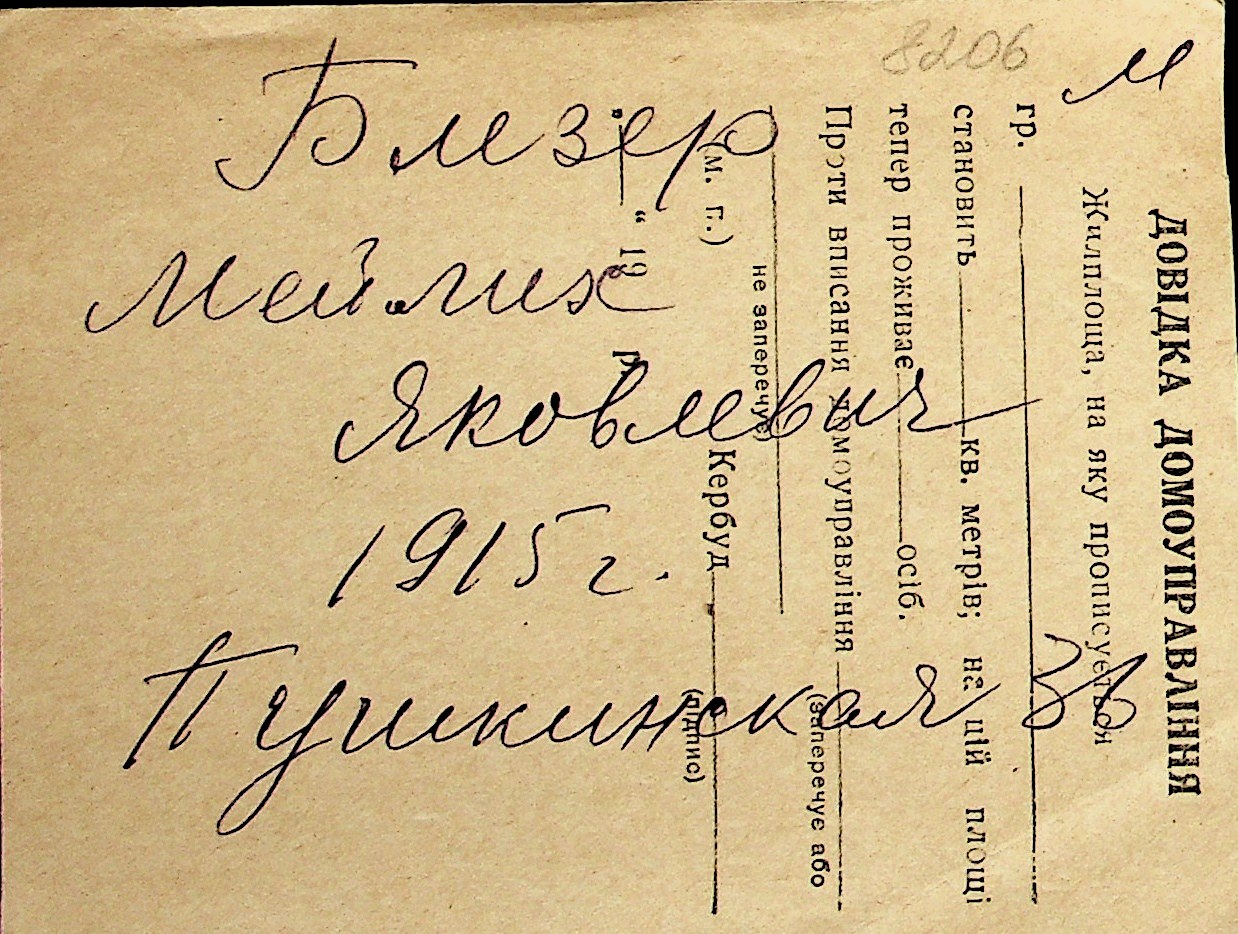 8206
м
Блезер
Мейлих
Яковлевич
1915 г.
Пушкинская 38
ДОВІДКА ДОМОУПРАВЛІННЯ
Жилплоща, на яку прописується
гр.
становить кв. метрів; на цій площі
тепер проживає осіб.
Проти вписання домоуправління
(заперечує або
не заперечує)
(м. п.) Кербуд
(підпис)
" 19 р.